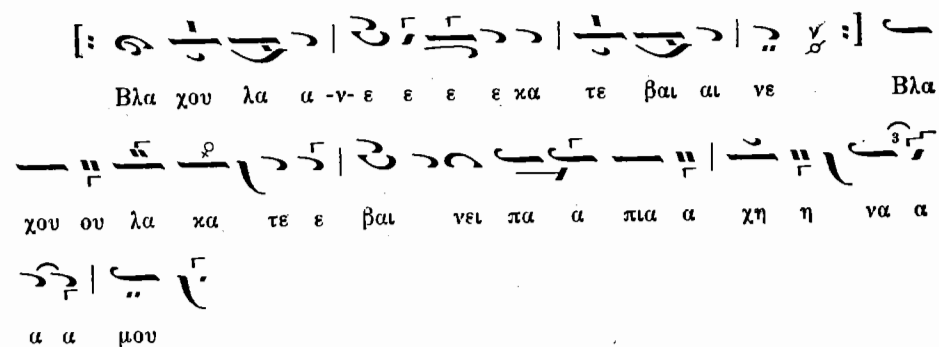 Βλα χου λα α -ν- ε ε ε ε κα τε βαι αι νε Βλα
χου ου λα κα τε ε βαι νει πα α πια α χη η να α
α α μου